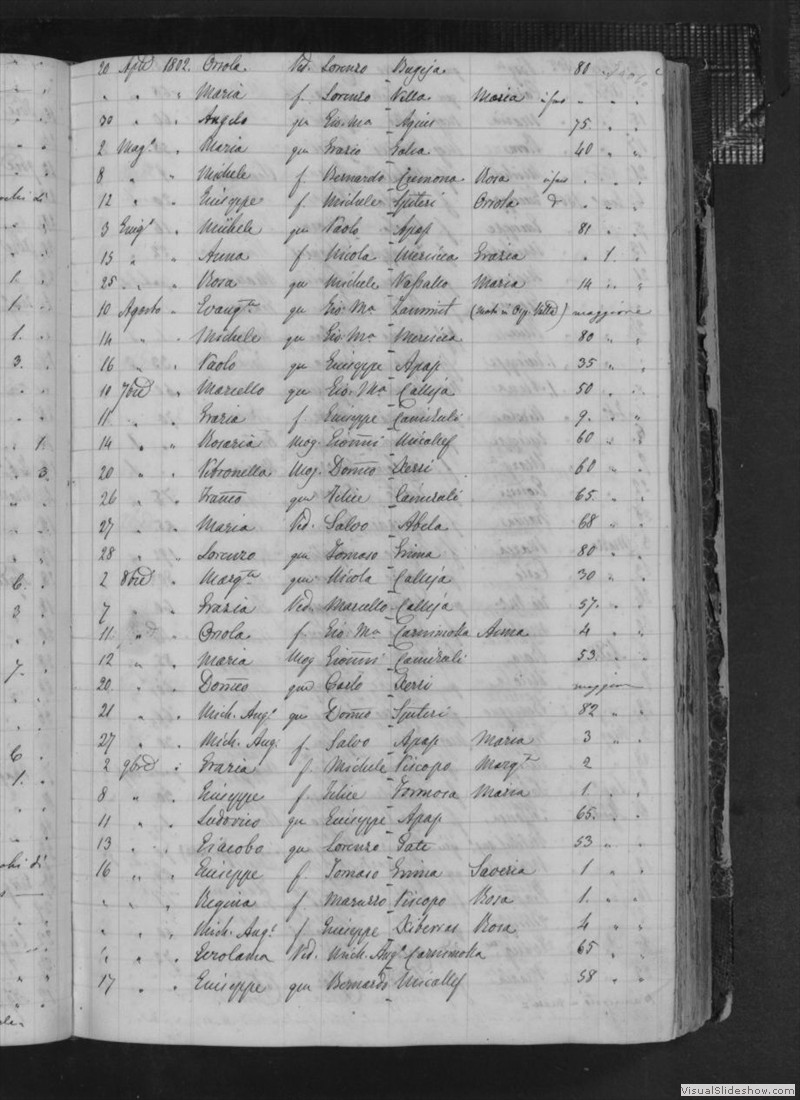 20 Aple 1802. Orsola Ved. Lorenzo Bugeja 80
" " " Maria f. Lorenzo Vella Maria
30 " " Angelo qu Gio. Ma Agius 75
2 Mago " Maria qu Grazio Galea 40 " "
8 " " Michele f. Bernardo Cremona Rosa
12 " " Giuseppe f. Michele Spiteri Orsola
3 Giugo " Michele qu Paolo Apap 81 " "
15 " " Anna f. Nicola Mercieca Grazia " 1. "
25 " " Rosa qu Michele Vassallo Maria 14 " "
10 Agosto " Evangta qu Gio Ma Zammit maggiore
14 " " Michele qu Gio Ma Mercieca 80 " "
16 " " Paolo qu Giuseppe Apap 35 " "
10 7bre " Marcello qu Gio. Ma Calleja 50
11 " " Grazia f Giuseppe Camizuli 9 " "
14 " " Rosaria Mog. Gionni Micallef 60 " "
20 " " Petronella Mog. Domco Xerri 60 " "
26 " " Franco qu Felice Camizuli 65 " "
27 " " Maria Ved. Salvo Abela 68 " "
28 " " Lorenzo qu Tomaso Grima 80 " "
2 8bre " Margta qu Nicola Calleja 30 " "
7 " " Grazia Ved Marcello Calleja 57 " "
11 " " Orsola f. Gio Ma Anna 4 " "
12 " " Maria Mog Gionni Camizuli 53 " "
20 " " Domco qu Carlo Xerri maggiore
21 " " Mich. Ango qu Domco Spiteri 82 " "
27 " " Mich. Ang. f. Salvo Apap Maria 3 " "
2 9bre " Grazia f. Michele Piscopo Margta 2
8 " " Giuseppe f. Felice Formosa Maria 1 " "
11 " " Ludovico qu Giuseppe Apap 65 " "
13 " " Giacobo qu Lorenzo 53 " "
16 " " Giuseppe f Tomaso Grima Saveria 1 " "
" " " Regina f Piscopo Rosa 1 " "
" " " Mich. Ango f Giuseppe Xiberras Rosa 4 " "
" " " Gerolama Ved. Mich. Ango 65 " "
17 " " Giuseppe qu Bernardo Micallef 58 " "
VisualSlideshow.com